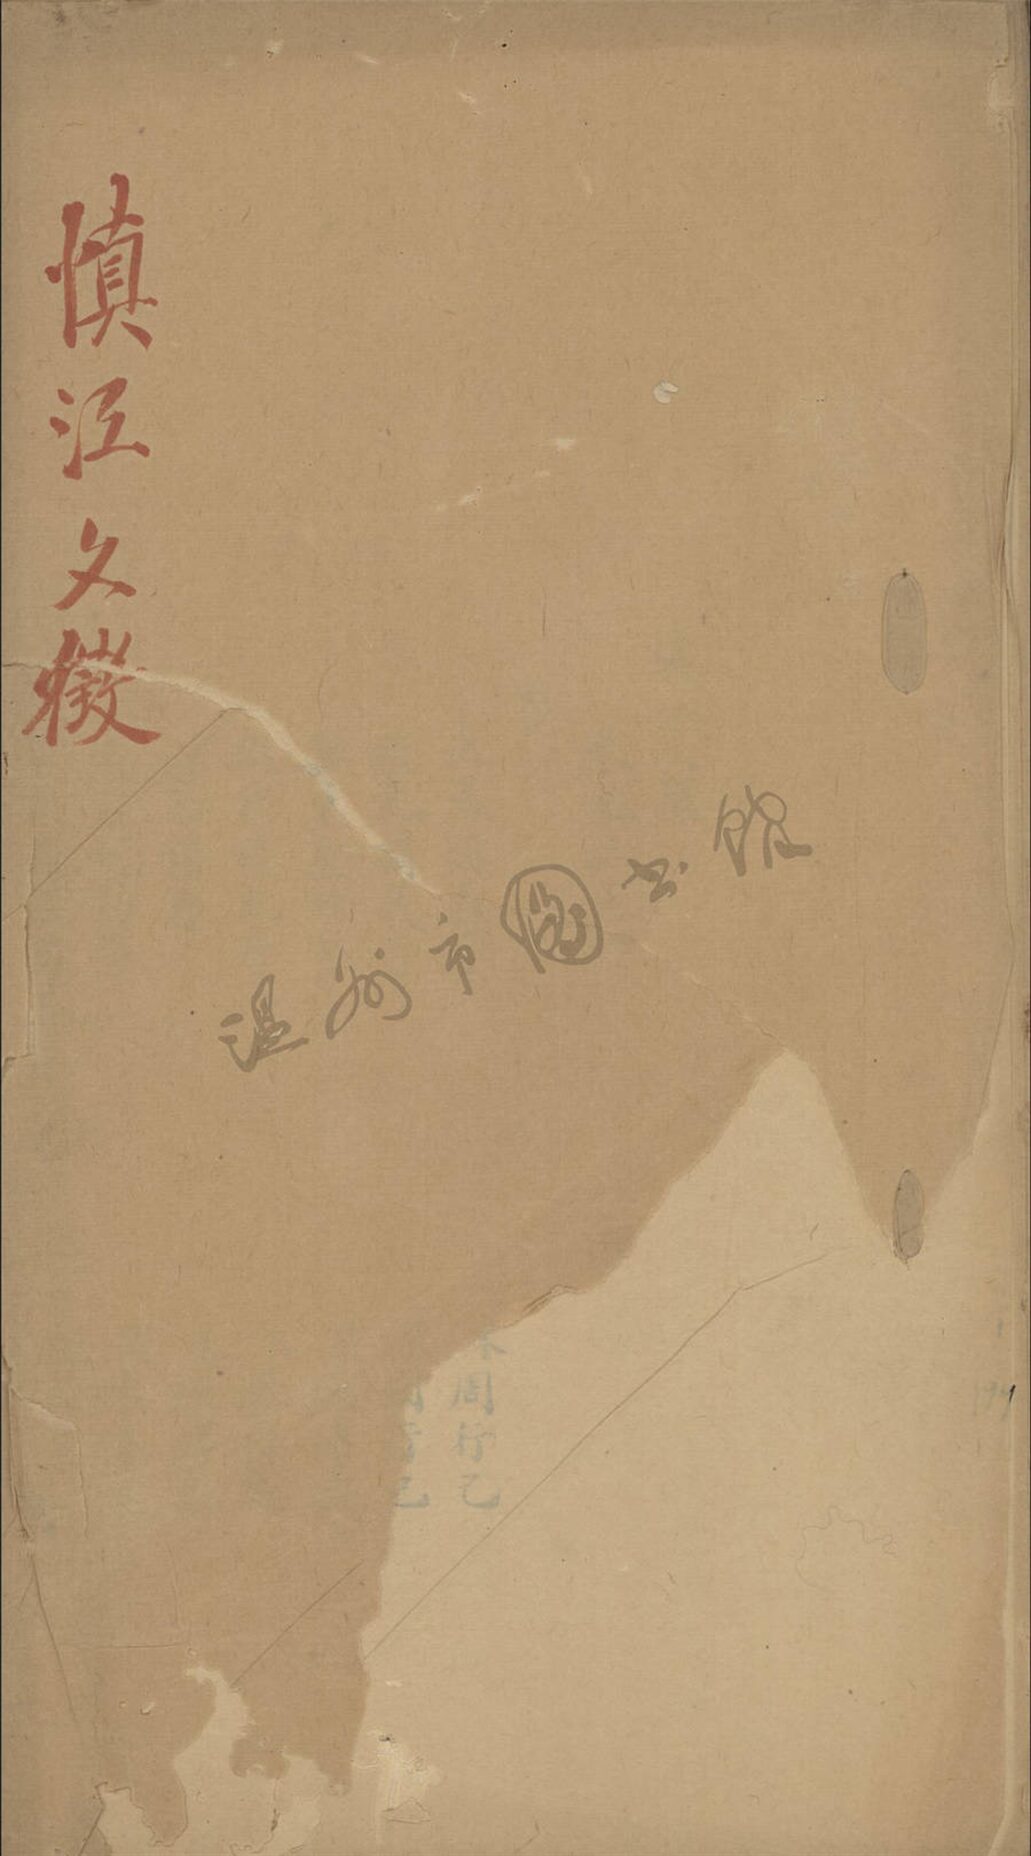 慎江文徵
温州市圖书馆
周行己